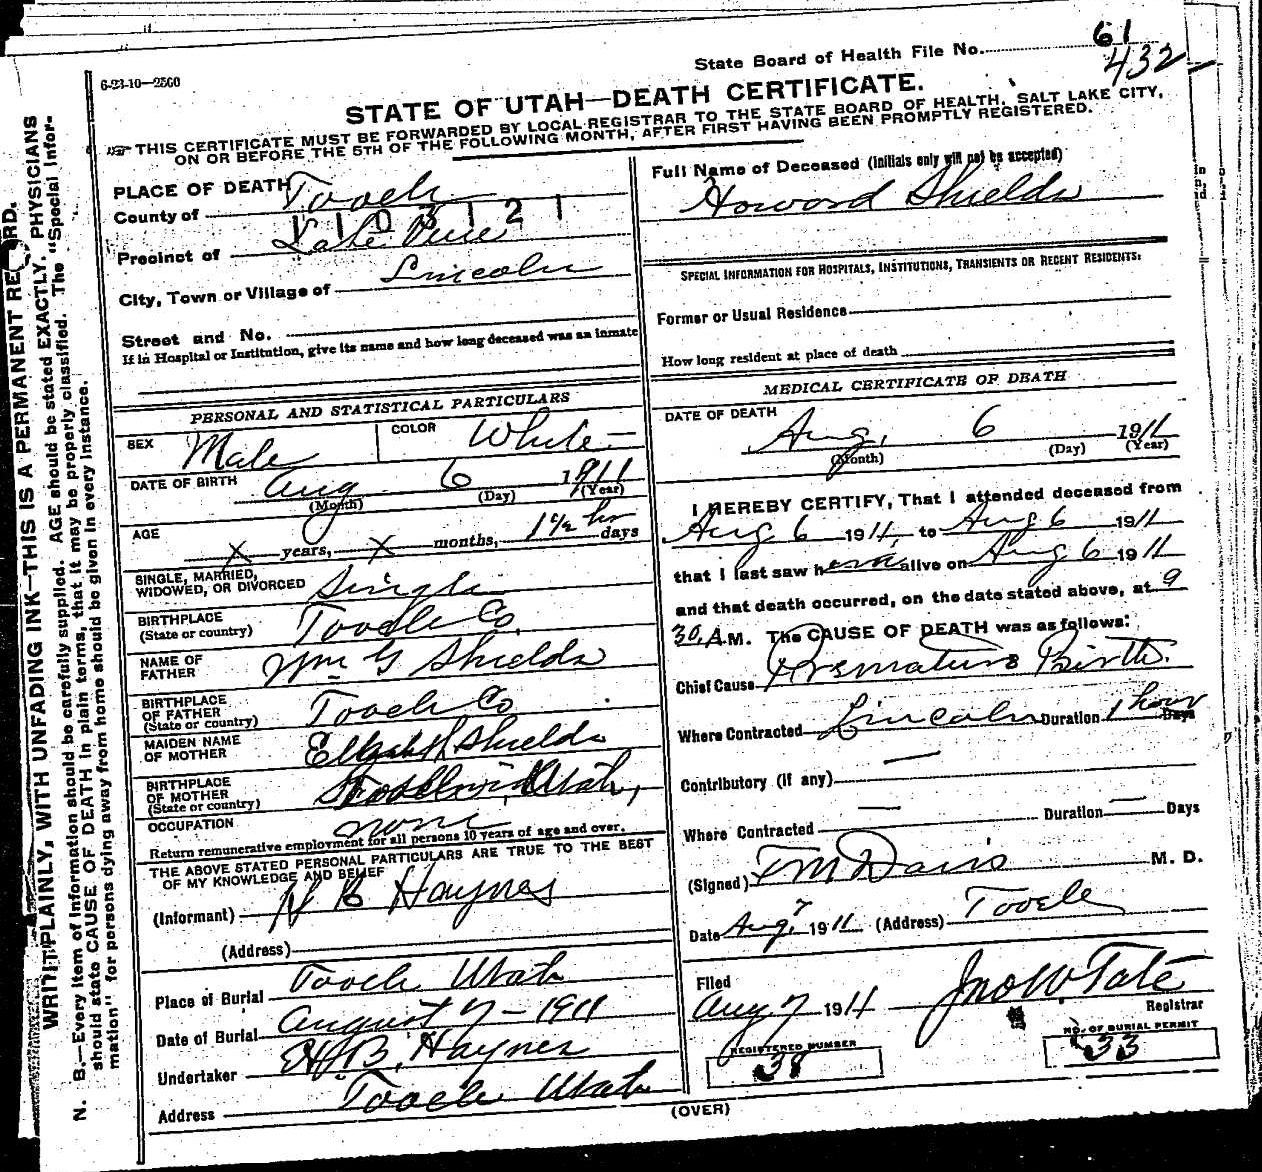 State Board of Health File No. 61
432
6-23-10—2500
STATE OF UTAH—DEATH CERTIFICATE.
THIS CERTIFICATE MUST BE FORWARDED BY LOCAL REGISTRAR TO THE STATE BOARD OF HEALTH, SALT LAKE CITY,
ON OR BEFORE THE 5TH OF THE FOLLOWING MONTH, AFTER FIRST HAVING BEEN PROMPTLY REGISTERED.
WRITE PLAINLY, WITH UNFADING INK—THIS IS A PERMANENT RECORD.
N. B.—Every item of information should be carefully supplied. AGE should be stated EXACTLY. PHYSICIANS
should state CAUSE OF DEATH in plain terms, that it may be properly classified. The "Special Infor-
mation" for persons dying away from home should be given in every instance.
PLACE OF DEATH
County of Tooele
1103121
Precinct of Lake View
City, Town or Village of Lincoln
Street and No.
If in Hospital or Institution, give its name and how long deceased was an inmate
PERSONAL AND STATISTICAL PARTICULARS
SEX Male COLOR White
DATE OF BIRTH Aug 6 1911
(Month) (Day) (Year)
AGE X years, X months, 1 1/2 hr days
SINGLE, MARRIED,
WIDOWED, OR DIVORCED Single
BIRTHPLACE
(State or country) Tooele Co.
NAME OF
FATHER Wm G Shields
BIRTHPLACE
OF FATHER
(State or country) Tooele Co
MAIDEN NAME
OF MOTHER Elizabeth Shields
BIRTHPLACE
OF MOTHER
(State or country) Utah,
OCCUPATION none
Return remunerative employment for all persons 10 years of age and over.
THE ABOVE STATED PERSONAL PARTICULARS ARE TRUE TO THE BEST
OF MY KNOWLEDGE AND BELIEF
(Informant) H B Haynes
(Address)
Place of Burial Tooele Utah
Date of Burial August 7 - 1911
Undertaker H. B. Haynes
Address Tooele Utah
Full Name of Deceased (Initials only will not be accepted)
Howard Shields
SPECIAL INFORMATION FOR HOSPITALS, INSTITUTIONS, TRANSIENTS OR RECENT RESIDENTS:
Former or Usual Residence
How long resident at place of death
MEDICAL CERTIFICATE OF DEATH
DATE OF DEATH Aug. 6 1911
(Month) (Day) (Year)
I HEREBY CERTIFY, That I attended deceased from
Aug 6 1911, to Aug 6 1911
that I last saw him alive on Aug 6 1911
and that death occurred, on the date stated above, at 9
30 A.M. The CAUSE OF DEATH was as follows:
Chief Cause Premature Birth.
Where Contracted Lincoln Duration 1 hour Days
Contributory (if any) —
Where Contracted — Duration — Days
(Signed) T M Davis M. D.
Date Aug 7 1911 (Address) Tooele
Filed
Aug 7 1911 Jno W. Tate
Registrar
REGISTERED NUMBER
38
NO. OF BURIAL PERMIT
33
(OVER)